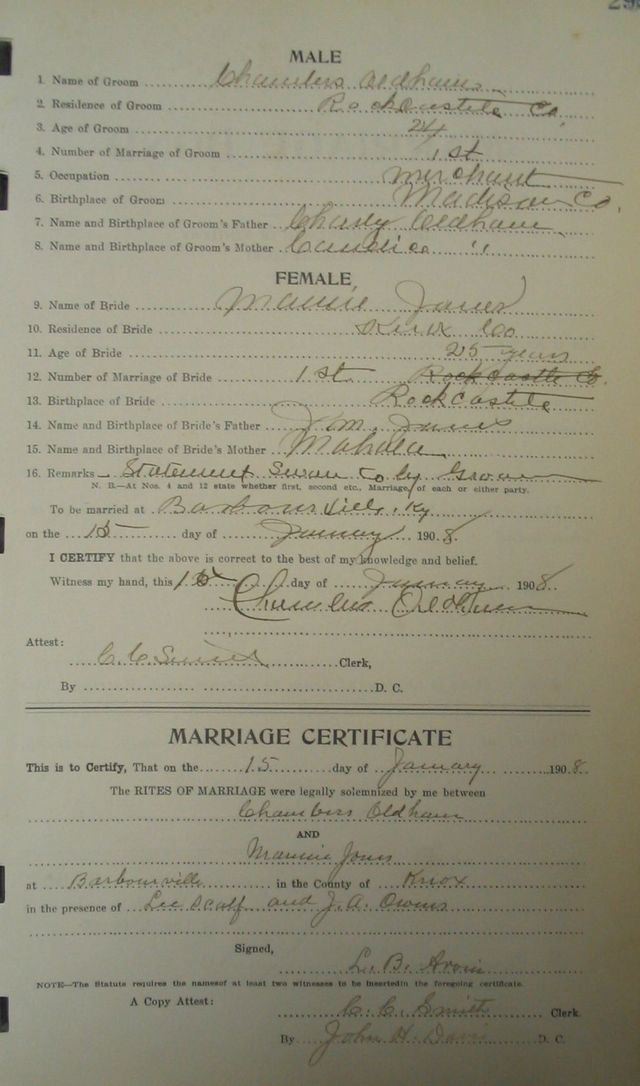 MALE
1. Name of Groom Chambers Oldham
2. Residence of Groom Rockcastle Co
3. Age of Groom 24
4. Number of Marriage of Groom 1st
5. Occupation Merchant
6. Birthplace of Groom Madison Co.
7. Name and Birthplace of Groom's Father Charly Oldham
8. Name and Birthplace of Groom's Mother " "
FEMALE
9. Name of Bride Mamie Jones
10. Residence of Bride Knox Coo
11. Age of Bride 25 years
12. Number of Marriage of Bride 1st Rockcastle Co.
13. Birthplace of Bride Rockcastle
14. Name and Birthplace of Bride's Father Jones
15. Name and Birthplace of Bride's Mother Mahala
16. Remarks Statement Swan to by Groom
N. B.—At Nos. 4 and 12 state whether first, second etc., Marriage of each or either party.
To be married at Barbourville, Ky
on the 15 day of January 1908.
I CERTIFY that the above is correct to the best of my knowledge and belief.
Witness my hand, this 15 day of January 1908.
Chambers Oldham
Attest:
C. C. Smith Clerk,
By D. C.
MARRIAGE CERTIFICATE
This is to Certify, That on the 15 day of January 1908.
The RITES OF MARRIAGE were legally solemnized by me between
Chambers Oldham
AND
Mamie Jones
at Barbourville in the County of Knox
in the presence of Lee Scalf and J. A. Owens
Signed,
L. B. Arvin
NOTE—The Statute requires the namesof at least two witnesses to be insertedin the foregoing certificate.
A Copy Attest: C. C. Smith Clerk.
By John H. Davis D. C.